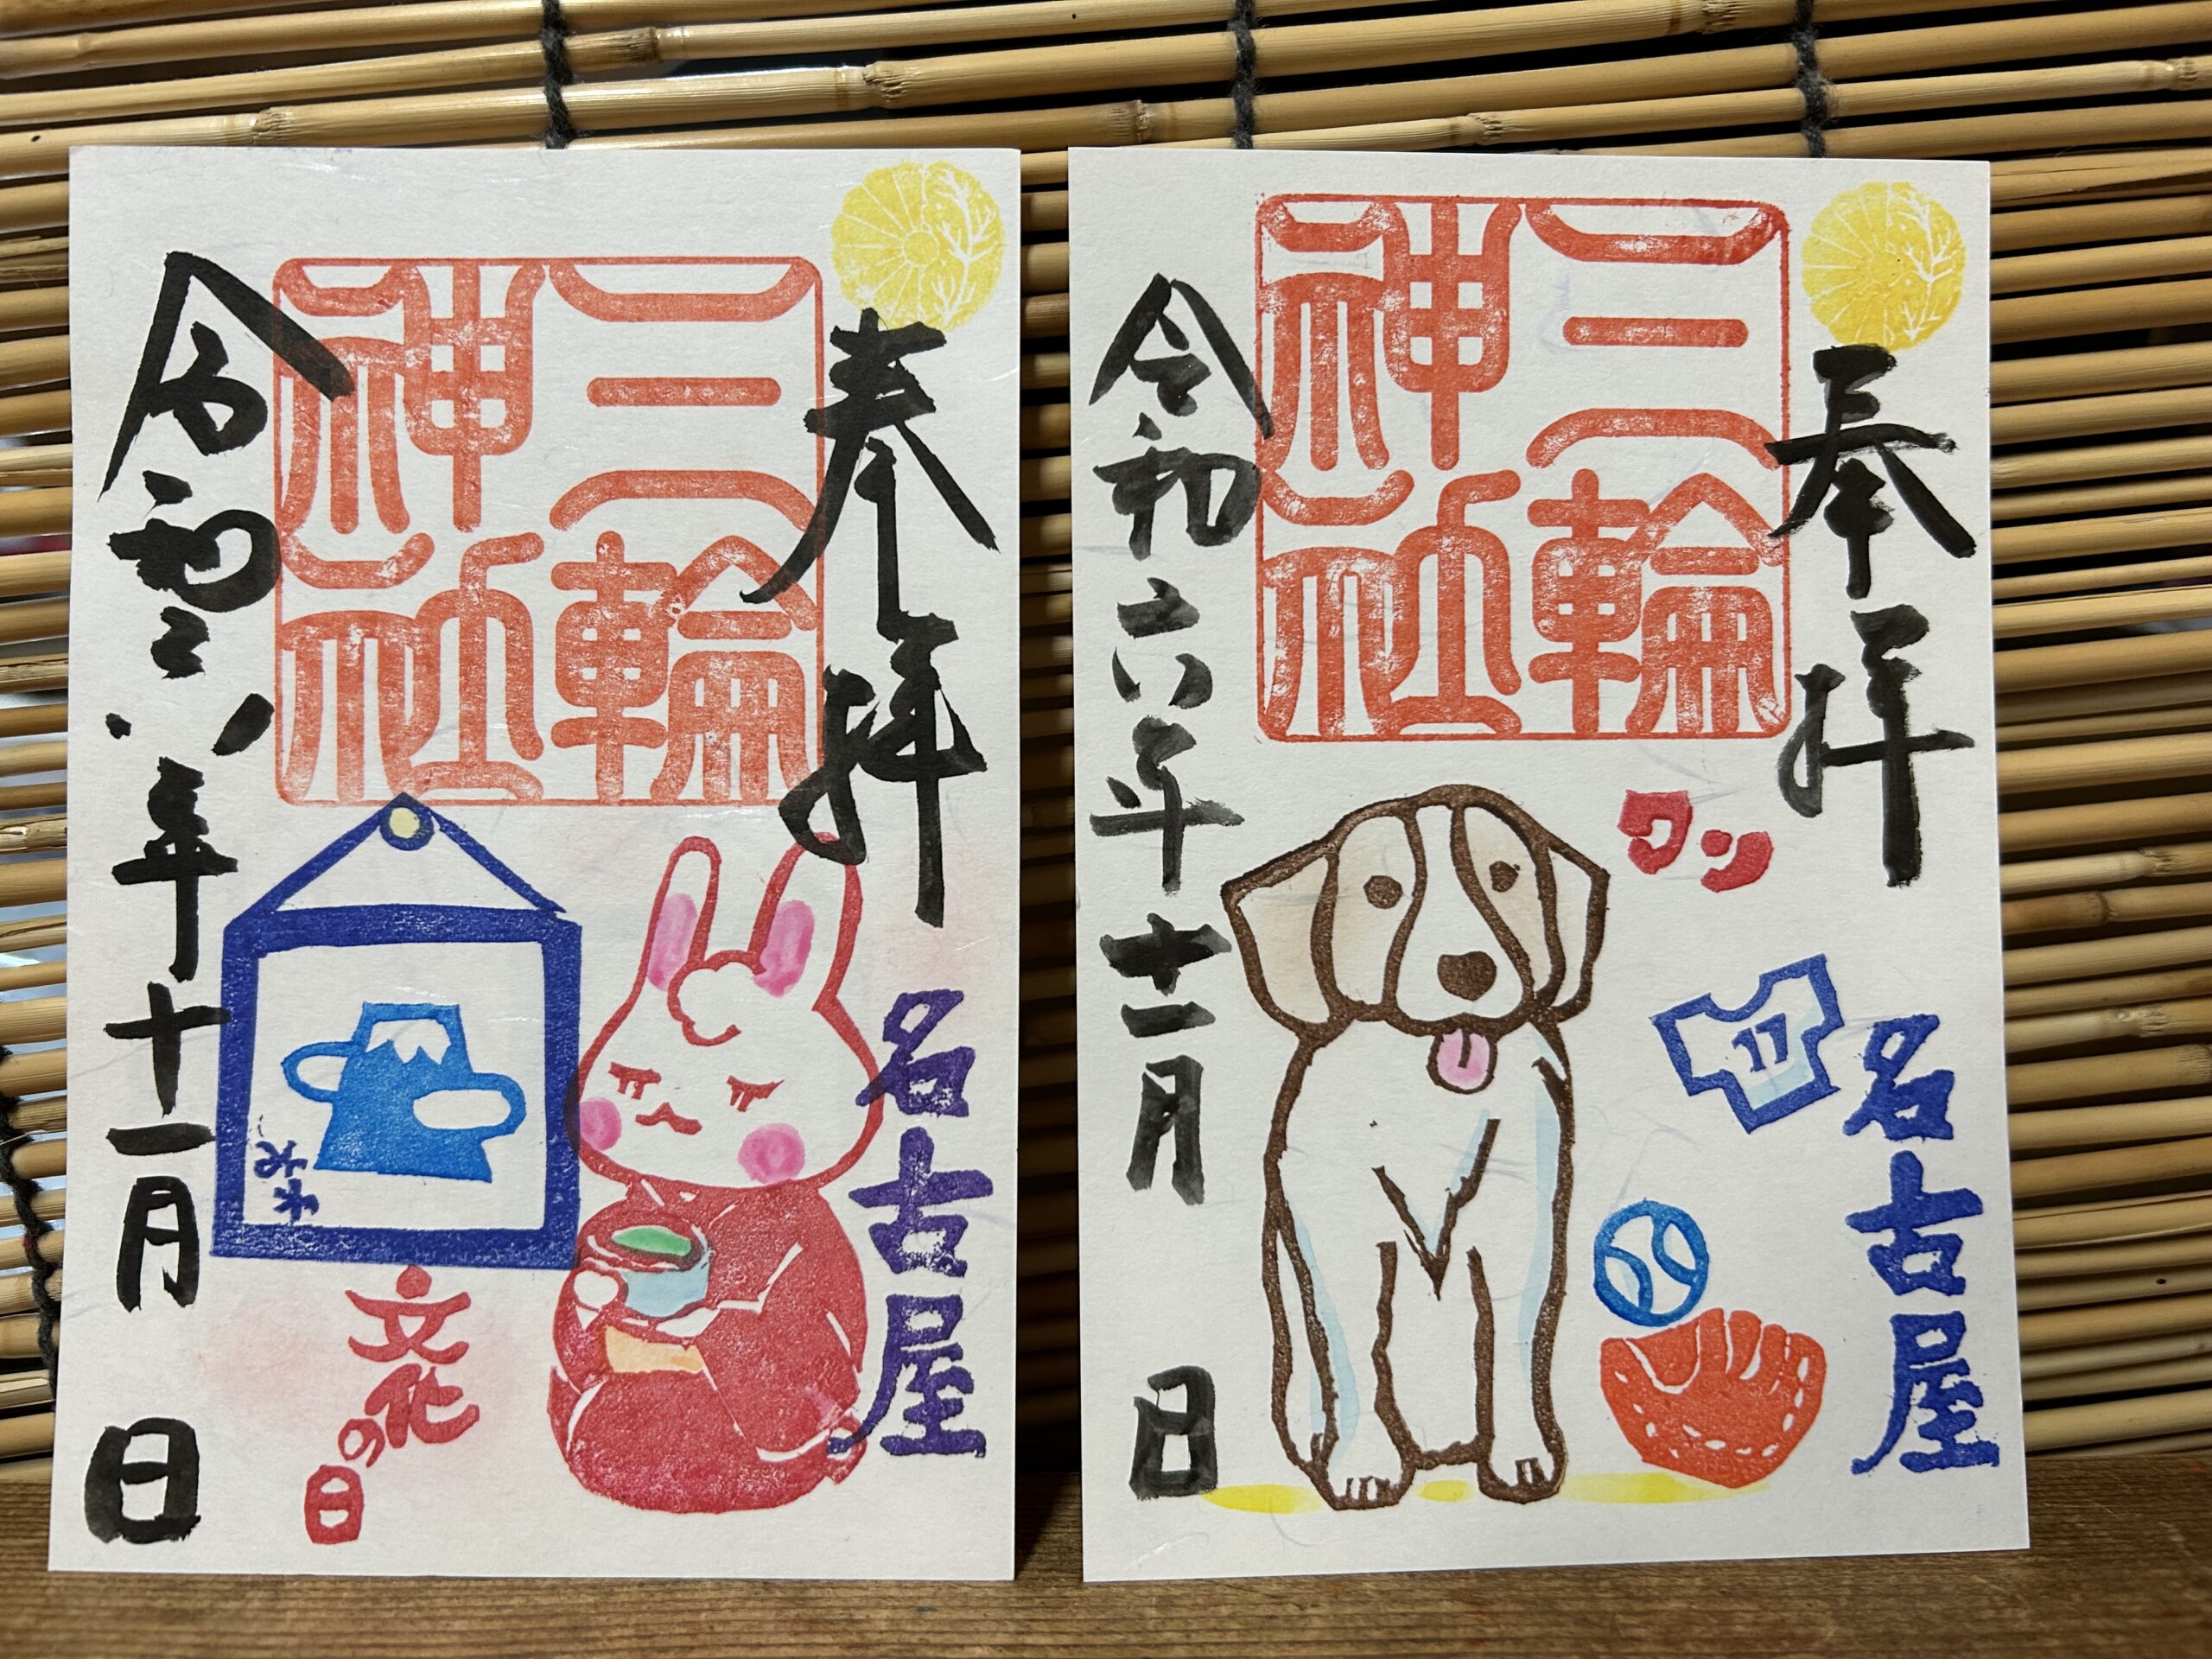 奉拝
三輪
神社
名古屋
令和六年十一月 日
文化の日
奉拝
三輪
神社
ワン
17
名古屋
令和六年十一月 日